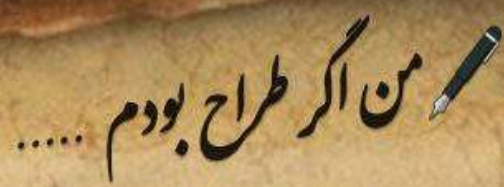 من اگر طراح بودم .....